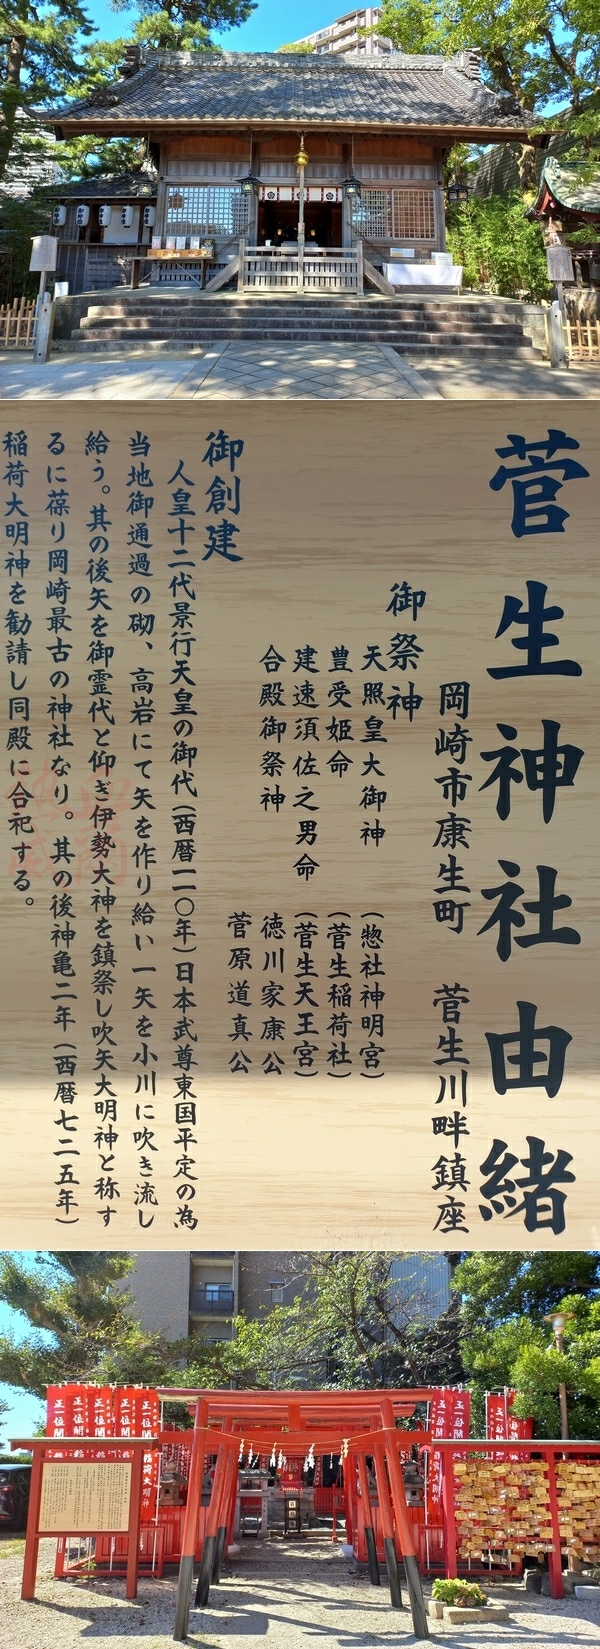 菅生神社由緒
岡崎市康生町　菅生川畔鎮座
御祭神
天照皇大御神　（惣社神明宮）
豊受姫命　（菅生稲荷社）
建速須佐之男命（菅生天王宮）
合殿御祭神　徳川家康公
菅原道真公
御創建
人皇十二代景行天皇の御代（西暦一一〇年）日本武尊東国平定の為
当地御通過の砌、高岩にて矢を作り給い一矢を小川に吹き流し
給う。其の後矢を御霊代と仰ぎ伊勢大神を鎮祭し吹矢大明神と称す
るに葆り岡崎最古の神社なり。其の後神亀二年（西暦七二五年）
稲荷大明神を勧請し同殿に合祀する。
正一位開
正一位開
正一位開
稲荷大明神
正一位開
正一位開